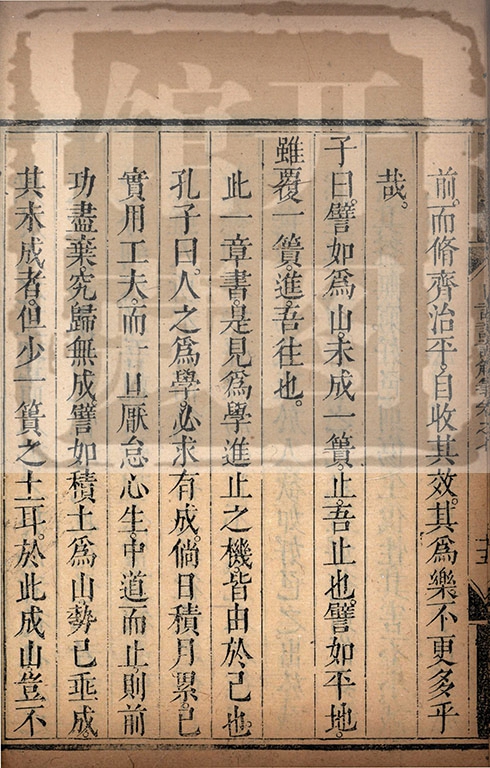 前。而脩齊治平。自收其效。其爲樂不更多乎
哉。
子曰。譬如爲山。未成一簣。止。吾止也。譬如平地。
雖覆一簣。進。吾往也。
此一章書。是見爲學進止之機。皆由於己也。
孔子曰。人之爲學。必求有成。倘日積月累。已
實用工夫。而一旦厭怠心生。中道而止。則前
功盡棄。究歸無成。譬如積土爲山。勢已垂成。
其未成者。但少一簣之土耳。於此成山。豈不